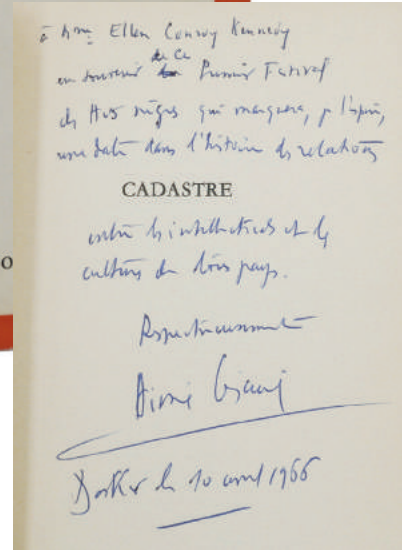 à Mme Ellen Conroy Kennedy
en souvenir de ce Premier Festival
des Arts nègres qui marquera, je l'espère,
une date dans l'histoire des relations
CADASTRE
entre les intellectuels et les
cultures de divers pays.
Respectueusement
Aimé Césaire
Dakar le 10 avril 1966
O